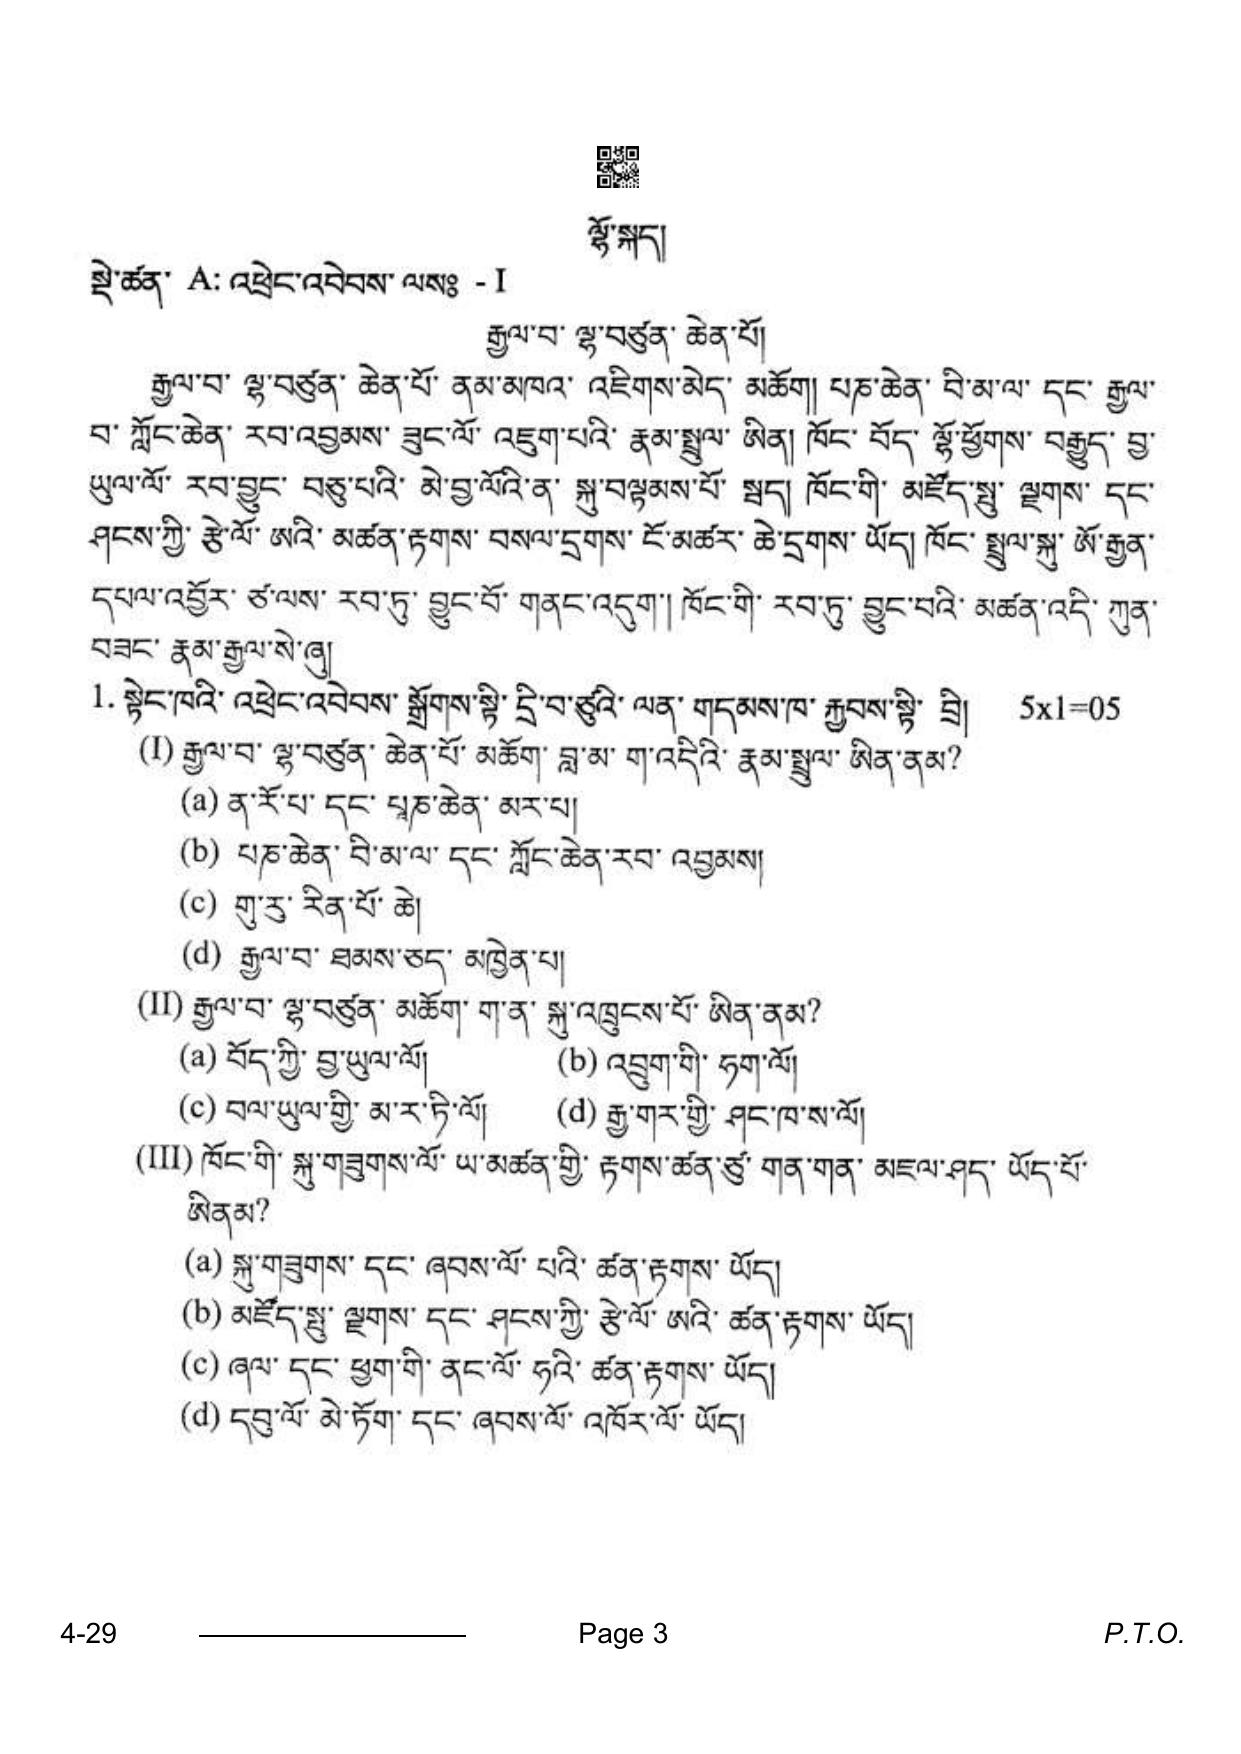 ལྷོ་སྐད།
སྡེ་ཚན་ A: འཕྲེང་འབེབས་ ལསཿ - I
རྒྱལ་བ་ ལྷ་བཙུན་ ཆེན་པོ།
རྒྱལ་བ་ ལྷ་བཙུན་ ཆེན་པོ་ ནམ་མཁའ་ འཇིགས་མེད་ མཆོག། པཎ་ཆེན་ བི་མ་ལ་ དང་ རྒྱལ་
བ་ ཀློང་ཆེན་ རབ་འབྱམས་ ཟུང་ལོ་ འཇུག་པའི་ རྣམ་སྤྲུལ་ ཨིན། ཁོང་ བོད་ ལྷོ་ཕྱོགས་ བརྒྱུད་ བྱ་
ཡུལ་ལོ་ རབ་བྱུང་ བཅུ་པའི་ མེ་བྱ་ལོའི་ན་ སྐུ་བལྟམས་པོ་ སྦད། ཁོང་གི་ མཛོད་སྤུ་ ལྗགས་ དང་
ཤངས་ཀྱི་ རྩེ་ལོ་ ཨའི་ མཚན་རྟགས་ བསལ་དྲགས་ ངོ་མཚར་ ཆེ་དྲགས་ ཡོད། ཁོང་ སྤྲུལ་སྐུ་ ཨོ་རྒྱན་
དཔལ་འབྱོར་ ཙ་ལས་ རབ་ཏུ་ བྱུང་བོ་ གནང་འདུག། ཁོང་གི་ རབ་ཏུ་ བྱུང་བའི་ མཚན་འདི་ ཀུན་
བཟང་ རྣམ་རྒྱལ་སེ་ཞུ།
1. སྟེང་ཁའི་ འཕྲེང་འབེབས་ སྒྲོགས་སྟི་ དྲི་བ་ཙུའི་ ལན་ གདམས་ཁ་ རྐྱབས་སྟི་ བྲི། 5x1=05
(I) རྒྱལ་བ་ ལྷ་བཙུན་ ཆེན་པོ་ མཆོག་ བླ་མ་ ག་འདིའི་ རྣམ་སྤྲུལ་ ཨིན་ནམ?
(a) ན་རོ་པ་ དང་ པཎ་ཆེན་ མར་པ།
(b) པཎ་ཆེན་ བི་མ་ལ་ དང་ ཀློང་ཆེན་རབ་ འབྱམས།
(c) གུ་རུ་ རིན་པོ་ ཆེ།
(d) རྒྱལ་བ་ ཐམས་ཅད་ མཁྱེན་པ།
(II) རྒྱལ་བ་ ལྷ་བཙུན་ མཆོག་ ག་ན་ སྐུ་འཁྲུངས་པོ་ ཨིན་ནམ?
(a) བོད་ཀྱི་ བྱ་ཡུལ་ལོ། (b) འབྲུག་གི་ ཧག་ལོ།
(c) བལ་ཡུལ་གྱི་ མ་ར་ཏི་ལོ། (d) རྒྱ་གར་གྱི་ ཤང་ཁ་ས་ལོ།
(III) ཁོང་གི་ སྐུ་གཟུགས་ལོ་ ཡ་མཚན་གྱི་ རྟགས་ཚན་ཙུ་ གན་གན་ མཇལ་ཤད་ ཡོད་པོ་
ཨིནམ?
(a) སྐུ་གཟུགས་ དང་ ཞབས་ལོ་ པའི་ ཚན་རྟགས་ ཡོད།
(b) མཛོད་སྤུ་ ལྗགས་ དང་ ཤངས་ཀྱི་ རྩེ་ལོ་ ཨའི་ ཚན་རྟགས་ ཡོད།
(c) ཞལ་ དང་ ཕྱག་གི་ ནང་ལོ་ ཧའི་ ཚན་རྟགས་ ཡོད།
(d) དབུ་ལོ་ མེ་ཏོག་ དང་ ཞབས་ལོ་ འཁོར་ལོ་ ཡོད།
4-29 Page 3 P.T.O.